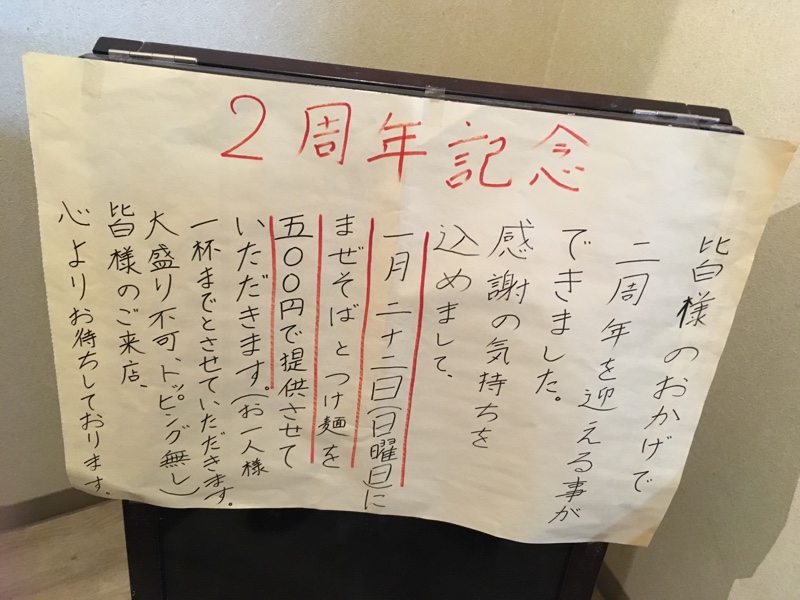 2周年記念
皆様のおかげで
二周年を迎える事が
できました。
感謝の気持ちを
込めまして、
一月二十二日(日曜日)に
まぜそばとつけ麺を
五〇〇円で提供させて
いただきます。(お一人様
一杯までとさせていただきます。
大盛り不可、トッピング無し)
皆様のご来店、
心よりお待ちしております。